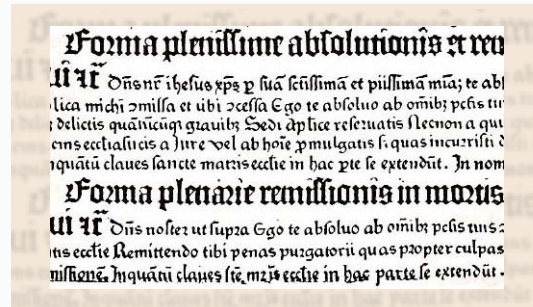 Forma plenissime absolutionis et rem
Dñs nr̃ ihesus xp̃s ꝑ suã sctissimã et piissimã mĩam; te abs
lica michi ꝯmissa et tibi ꝯcessa Ego te absoluo ab om̃ibꝫ pctis tui
delictis quãtũcũqꝫ grauibꝫ Sedi Aplice reseruatis Necnon a qui
cens ecclesiasticis a Jure vel ab hoĩe ꝓmulgatis si quas incurristi
inquãtũ claues sancte matris ecclie in hac ꝑte se extendũt. In nom
Forma plenarie remissionis in mortis
Dñs noster ut supra Ego te absoluo ab om̃ibꝫ pctis tuis ꝛ
tis ecclie Remittendo tibi penas purgatorii quas propter culpas
missionẽ. Inquãtũ claues scte mr̃is ecclie in hac parte se extendũt